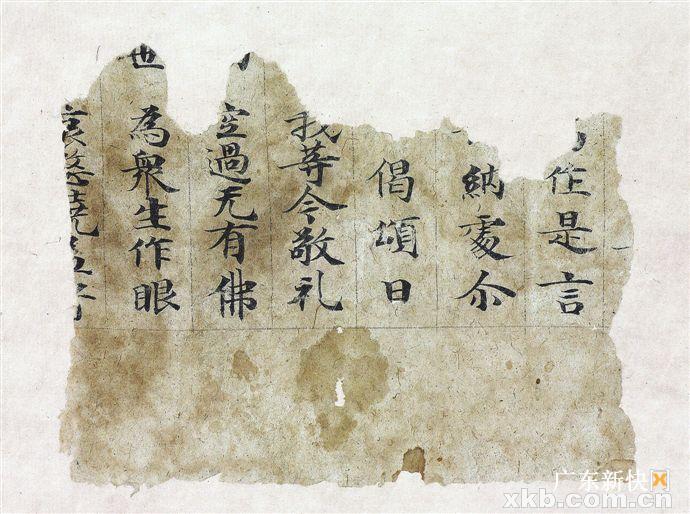 作是言
納處尒
偈頌曰
我等今敬礼
空過无有佛
世為衆生作眼
哀愍饒益
广东新快网
xkb.com.cn